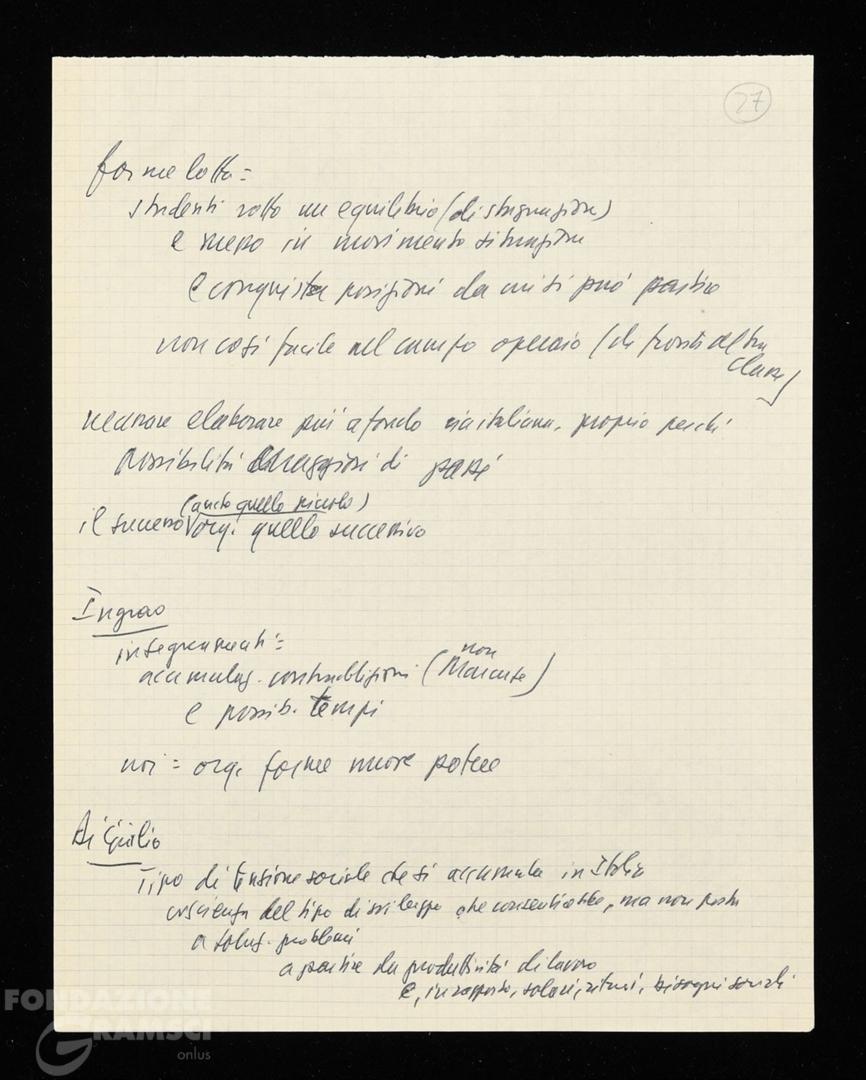 27
forme lotta =
studenti rotto un equilibrio (di stagnazione)
e messo in movimento situazione
e conquista posizioni da cui si può partire
non così facile nel campo operaio (di fronte altra
classe)
necessare elaborare più a fondo via italiana, proprio perché
possibilità maggiori di
(anche quello piccolo)
il successo org. quello successivo
Ingrao
insegnamenti =
accumulaz. contraddizioni (non Marcuse)
e possib. tempi
noi = org. forme nuove potere
Di Giulio
Tipo di tensione sociale che si accumula in Italia
coscienza del tipo di sviluppo che consentirebbe, ma non porta
a soluz. problemi
a partire da produttività di lavoro
e, in rapporto, salari, ritmi, bisogni sociali
FONDAZIONE
GRAMSCI
onlus